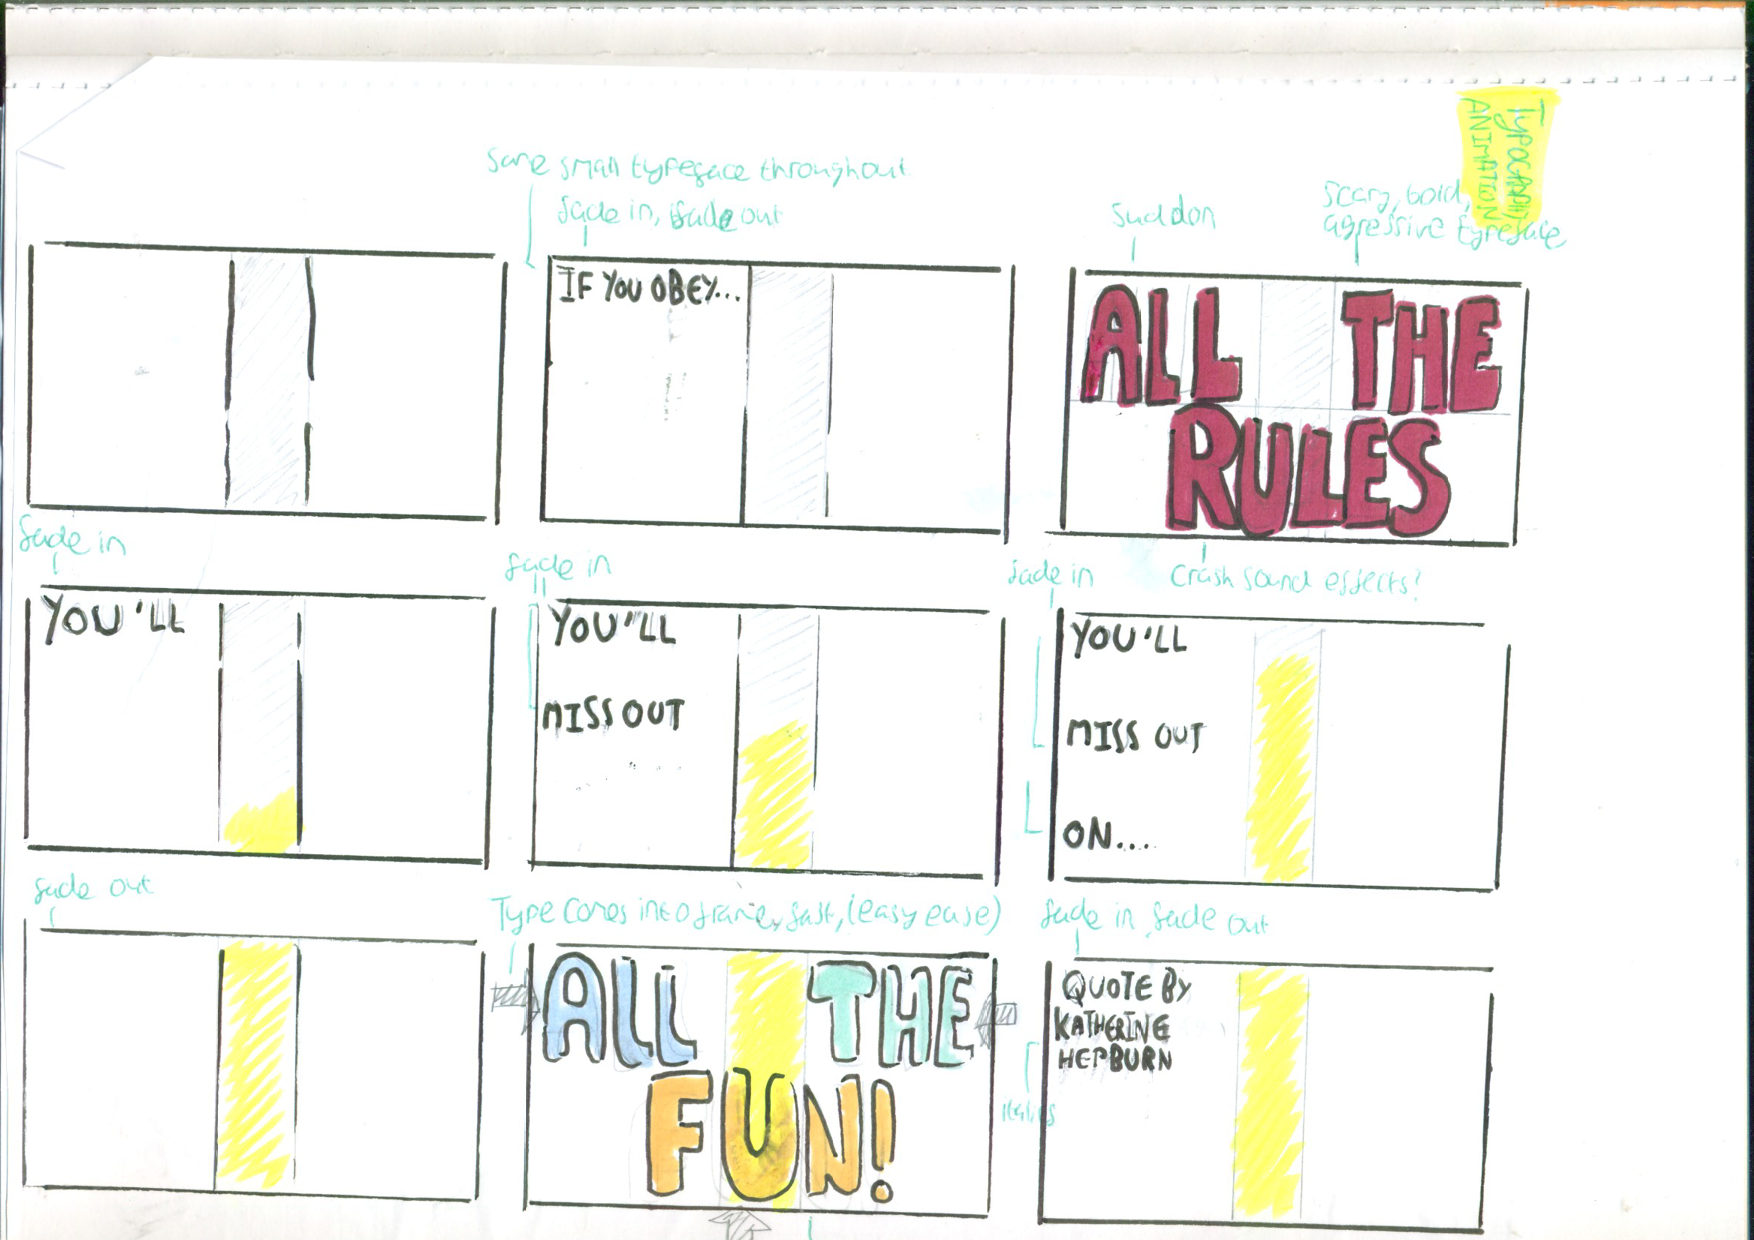 TYPOGRAPHY
ANIMATION
Same small typeface throughout
fade in, fade out
Suddon
Scary, bold,
agressive typeface
IF YOU OBEY...
ALL THE
RULES
fade in
fade in
fade in
Crash sound effects?
YOU'LL
YOU'LL
MISS OUT
YOU'LL
MISS OUT
ON....
fade out
Type comes into frame, fast, (easy ease)
fade in, fade out
ALL THE
FUN!
QUOTE BY
KATHERINE
HEPBURN
italics